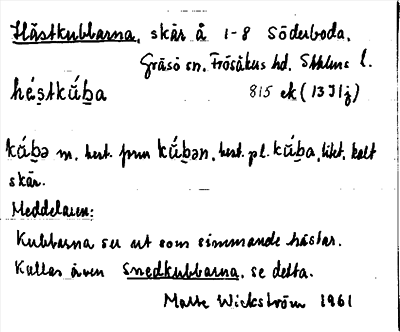 Hästkubbarna, skär å 1-8 Söderboda,
Gräsö sn. Frösåkers hd. Sthlms l.
hés̩tkú̄b̠a 815 ek (13 I 1j)
kú̄b̠ə m. best. form kú̄b̠ən, best. pl. kú̄b̠a, litet, kalt
skär.
Meddelaren:
Kubbarna ser ut som simmande hästar.
Kallas även Snedkubbarna, se detta.
Matte Wickström 1961